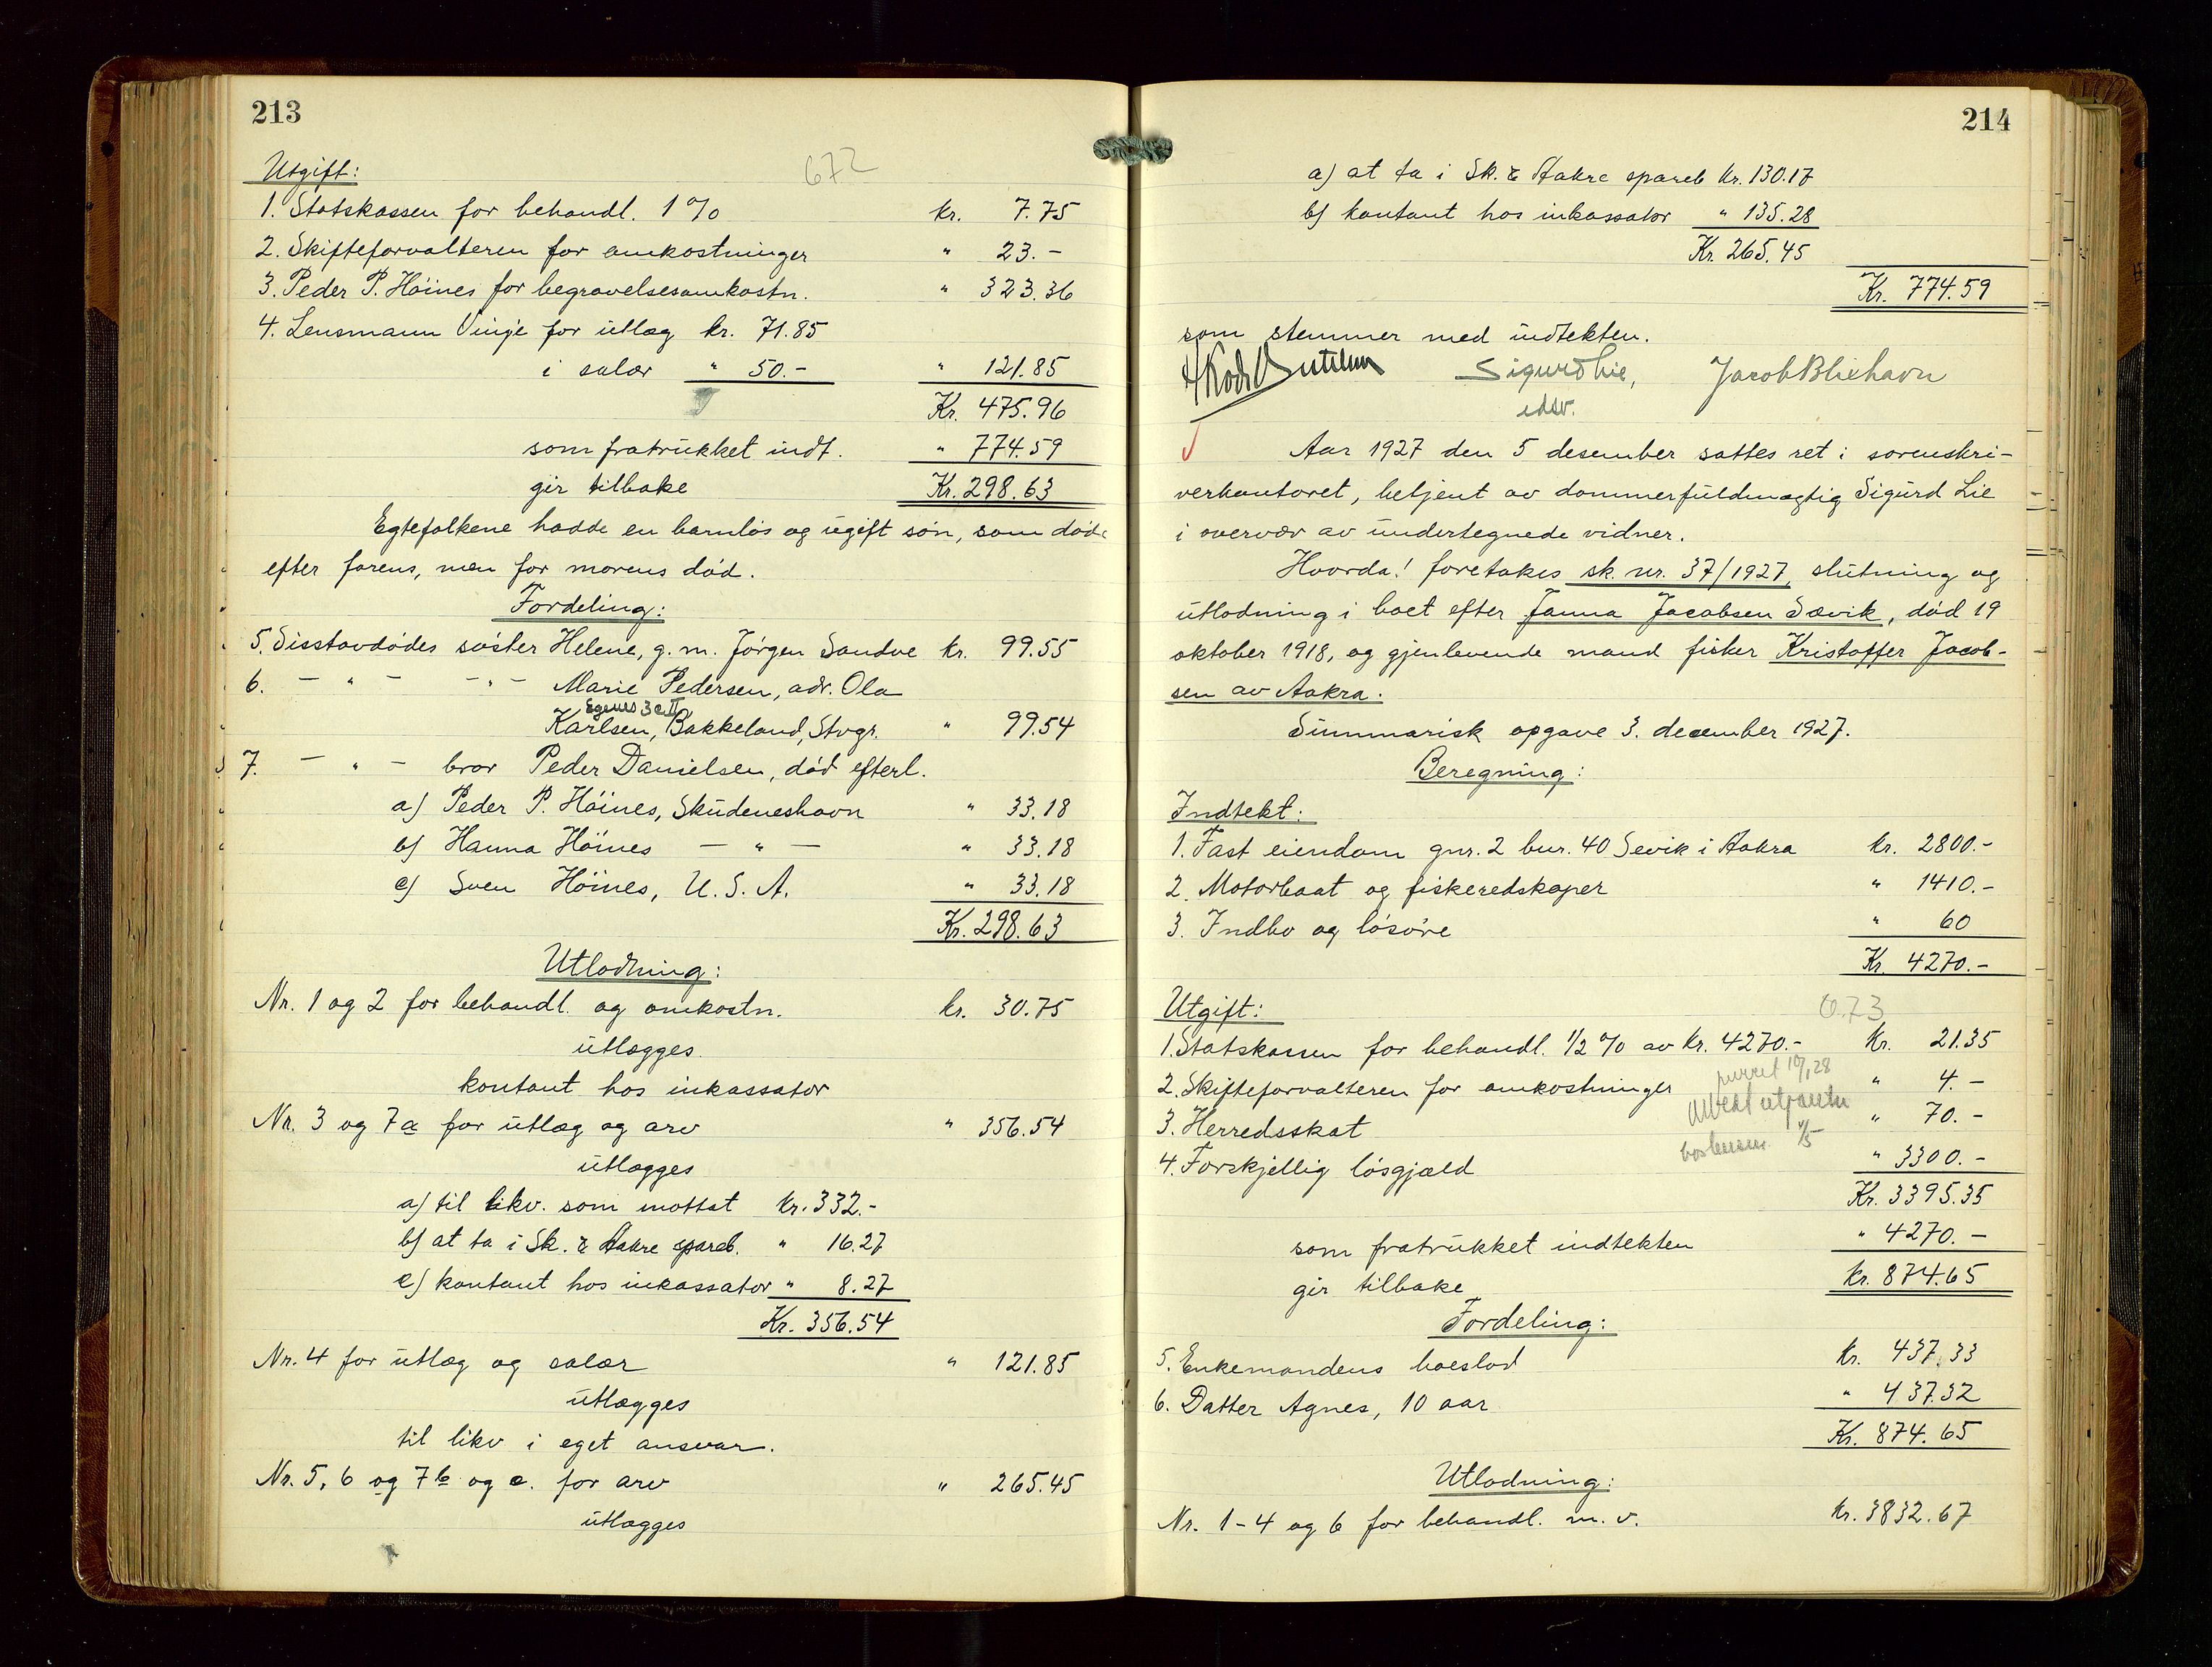 213
672
Utgift:
1. Statskassen for behandl. 1 % kr. 7.75
2. Skifteforvalteren for omkostninger " 23.-
3. Peder P. Höines for begravelsesomkostn. " 323.36
4. Lensmann Vinje for utlæg kr. 71.85
i salær " 50.- " 121.85
Kr. 475.96
som fratrukket indt. " 774.59
gir tilbake Kr. 298.63
Egtefolkene hadde en barnløs og ugift søn, som døde
efter farens, men før morens død.
Fordeling:
5. Sisstavdødes søster Helene, g. m. Jørgen Sandve kr. 99.55
6. — " — — " — Marie Pedersen, adr. Ola
Egenes 3 c II
Karlsen, Bakkeland, Stvgr. " 99.54
7. — " — bror Peder Danielsen, død efterl.
a) Peder P. Höines, Skudeneshavn " 33.18
b) Hanna Höines — " — " 33.18
c) Sven Höines, U. S. A. " 33.18
Kr. 298.63
Utlodning:
Nr. 1 og 2 for behandl. og omkostn. kr. 30.75
utlægges
kontant hos inkassator
Nr. 3 og 7a for utlæg og arv " 356.54
utlægges
a) til likv. som mottat Kr. 332.-
b) at ta i Sk. & Aakre spareb. " 16.27
c) kontant hos inkassator " 8.27
Kr. 356.54
Nr. 4 for utlæg og salær " 121.85
utlægges
til likv i eget ansvar.
Nr. 5, 6 og 7b og c. for arv " 265.45
utlægges
214
a) at ta i Sk. & Aakre spareb Kr. 130.17
b) kontant hos inkassator " 135.28
Kr. 265.45
Kr. 774.59
som stemmer med indtekten.
Sigurd Lie, Jacob Blixhavn
edsv.
Aar 1927 den 5 desember sattes ret i sorenskri-
verkontoret, betjent av dommerfuldmægtig Sigurd Lie
i overvær av undertegnede vidner.
Hvorda! foretokes sk. nr. 37/1927, slutning og
utlodning i boet efter Janna Jacobsen Sævik, død 19
oktober 1918, og gjenlevende mand fisker Kristoffer Jacob-
sen av Aakra.
Summarisk opgave 3. december 1927.
Beregning:
Indtekt:
1. Fast eiendom gnr. 2 bnr. 40 Sevik i Aakra kr. 2800.-
2. Motorbaat og fiskeredskaper " 1410.-
3. Indbo og løsøre " 60
Kr. 4270.-
Utgift: 673
1. Statskassen for behandl. 1/2 % av Kr. 4270.- Kr. 21.35
2. Skifteforvalteren for omkostninger " 4.-
3. Herredsskat " 70.-
4. Forskjellig løsgjæld " 3300.-
Kr. 3395.35
som fratrukket indtekten " 4270.-
gir tilbake kr. 874.65
Fordeling:
5. Enkemandens boeslod kr. 437.33
6. Datter Agnes, 10 aar " 437.32
Kr. 874.65
Utlodning:
Nr. 1-4 og 6 for behandl. m. v. Kr. 3832.67